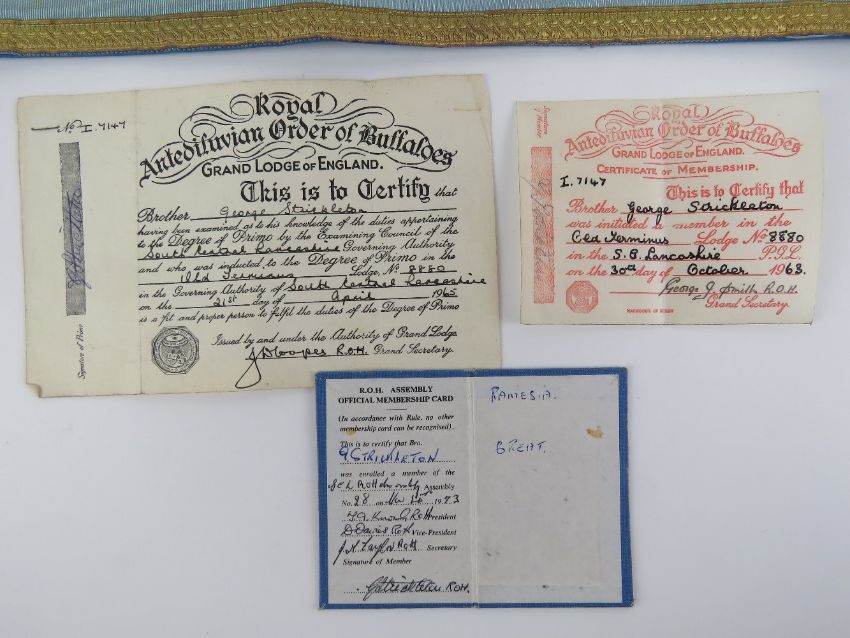 No I.7147
Royal
Antediluvian Order of Buffaloes
GRAND LODGE OF ENGLAND.
This is to Certify that
Brother George Strickleton
having been examined as to his knowledge of the duties appertaining
to the Degree of Primo by the Examining Council of the
South Central Lancashire Governing Authority
and who was inducted to the Degree of Primo in the
Old Terminus Lodge, No 8880
in the Governing Authority of South Central Lancashire
on the 21st day of April 1965
is a fit and proper person to fulfil the duties of the Degree of Primo
Issued by and under the Authority of Grand Lodge.
R.O.H. Grand Secretary.
Signature of Primo
Royal
Antediluvian Order of Buffaloes
GRAND LODGE OF ENGLAND.
CERTIFICATE OF MEMBERSHIP.
I.7147
This is to Certify that
Brother George Strickleton
was initiated a member in the
Old Terminus Lodge No 8880
in the S.C. Lancashire P.G.L.
on the 30th day of October 1963.
George J Smith R.O.H.
Grand Secretary.
R.O.H. ASSEMBLY
OFFICIAL MEMBERSHIP CARD
(In accordance with Rule, no other
membership card can be recognised).
This is to certify that Bro.
G STRICKLETON
was enrolled a member of the
Assembly
No. 28 on 1973
President
D Davies ROH Vice-President
J.H. Taylor ROH Secretary
Signature of Member
G Strickleton ROH.
RAMESIA.
GREAT.